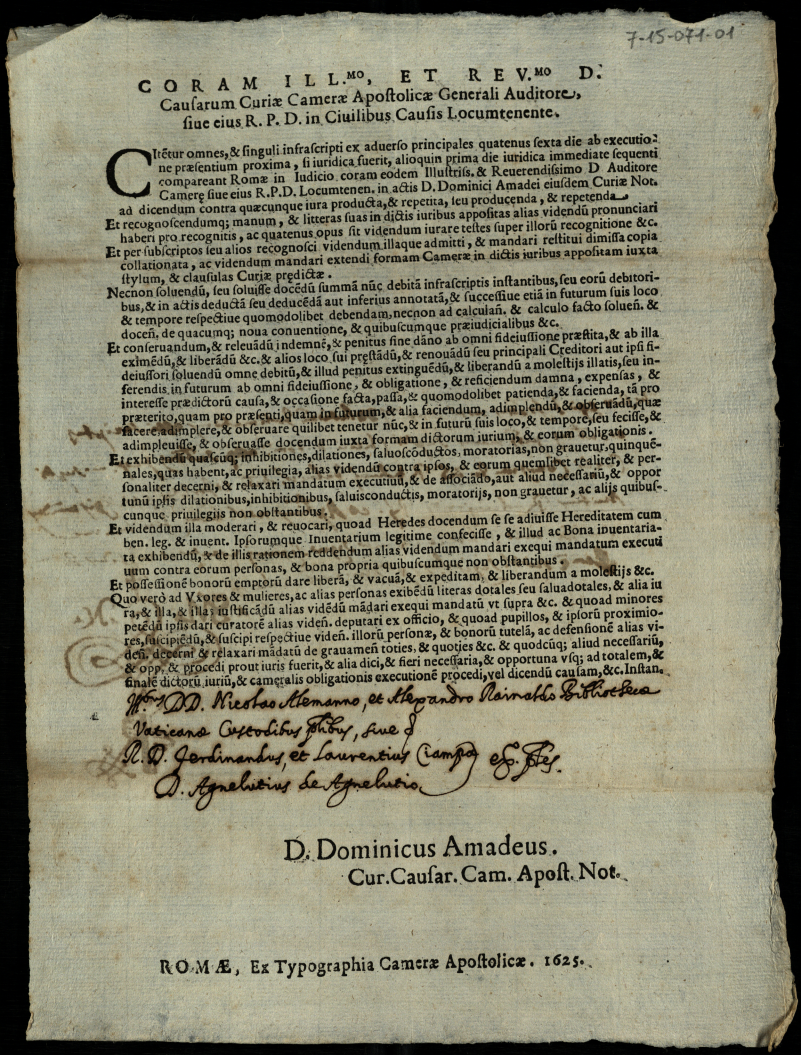 7-15-071-01
CORAM ILL.MO, ET REV.MO D.
Cauſarum Curiæ Cameræ Apoſtolicæ Generali Auditore,
ſiue eius R. P. D. in Ciuilibus Cauſis Locumtenente.
CItētur omnes,& ſinguli infraſcripti ex aduerſo principales quatenus ſexta die ab executio-
ne præſentium proxima, ſi iuridica fuerit, alioquin prima die iuridica immediate ſequenti
compareant Romæ in Iudicio coram eodem Illuſtriſs. & Reuerendiſſimo D Auditore
Camerę ſiue eius R.P.D. Locumtenen. in actis D. Dominici Amadei eiuſdem Curiæ Not.
ad dicendum contra quæcunque iura producta,& repetita, ſeu producenda, & repetenda
Et recognoſcendumq; manum, & litteras ſuas in dictis iuribus appoſitas alias videndū pronunciari
haberi pro recognitis, ac quatenus opus ſit videndum iurare teſtes ſuper illorū recognitione &c.
Et per ſubſcriptos ſeu alios recognoſci videndum illaque admitti, & mandari reſtitui dimiſſa copia
collationata, ac videndum mandari extendi formam Cameræ in dictis iuribus appoſitam iuxta
ſtylum, & clauſulas Curiæ prędictæ.
Necnon ſoluendū, ſeu ſoluiſſe docēdū ſummā nūc debitā infraſcriptis inſtantibus, ſeu eorū debitori-
bus,& in actis deductā ſeu deducēdā aut inferius annotatā,& ſucceſſiue etiā in futurum ſuis loco
& tempore reſpectiue quomodolibet debendam, necnon ad calculan̄. & calculo facto ſoluen̄. &
docen̄. de quacumq; noua conuentione, & quibuſcumque præiudicialibus &c.
Et conſeruandum,& releuādū indemnē,& penitus ſine dāno ab omni fideiuſſione præſtita,& ab illa
eximēdū,& liberādū &c.& alios loco ſui pręſtādū,& renouādū ſeu principali Creditori aut ipſi fi-
deiuſſori ſoluendū omne debitū,& illud penitus extinguēdū,& liberandū a moleſtijs illatis,ſeu in-
ferendis in futurum ab omni fideiuſſione, & obligatione, & reficiendum damna, expenſas, &
intereſſe prædictorū cauſa,& occaſione facta,paſſa,& quomodolibet patienda,& facienda, tā pro
præterito,quam pro præſenti,quam in futurum,& alia faciendum, adimplendū,& obſeruādū,quæ
facere,adimplere,& obſeruare quilibet tenetur nūc,& in futurū ſuis loco,& tempore,ſeu feciſſe,&
adimpleuiſſe, & obſeruaſſe docendum iuxta formam dictorum iurium, & eorum obligationis.
Et exhibendū quaſcūq; inhibitiones,dilationes, ſaluoſcōductos, moratorias,non grauetur,quinquē-
nales,quas habent,ac priuilegia, alias videndū contra ipſos, & eorum quemlibet realiter, & per-
ſonaliter decerni, & relaxari mandatum executiuū,& de aſſociādo,aut aliud neceſſariū,& oppor
tunū ipſis dilationibus,inhibitionibus, ſaluisconductis, moratorijs, non grauetur, ac alijs quibuſ-
cunque priuilegijs non obſtantibus.
Et videndum illa moderari, & reuocari, quoad Heredes docendum ſe ſe adiuiſſe Hereditatem cum
ben. leg. & inuent. Ipſorumque Inuentarium legitime confeciſſe, & illud ac Bona inuentaria-
ta exhibendū,& de illis rationem reddendum alias videndum mandari exequi mandatum executi
uum contra eorum perſonas, & bona propria quibuſcumque non obſtantibus.
Et poſſeſſionē bonorū emptorū dare liberā, & vacuā,& expeditam, & liberandum a moleſtijs &c.
Quo verò ad Vxores & mulieres, ac alias perſonas exibēdū literas dotales ſeu ſaluadotales,& alia iu
ra,& illa,& illas iuſtificādū alias vidēdū mādari exequi mandatū vt ſupra &c. & quoad minores
petēdū ipſis dari curatorē alias viden̄. deputari ex officio, & quoad pupillos, & ipſorū proximio-
res,ſuſcipiēdū,& ſuſcipi reſpectiue viden̄. illorū perſonæ, & bonorū tutelā, ac defenſionē alias vi-
den̄. decerni & relaxari mādatū de grauamen̄ toties, & quoties &c. & quodcūq; aliud neceſſariū,
& opp. & procedi prout iuris fuerit,& alia dici,& fieri neceſſaria,& opportuna vſq; ad totalem,&
finalē dictorū iuriū,& cameralis obligationis executionē procedi,vel dicendū cauſam,&c.Inſtan.
DD. Nicolao Alemanno, et Alexandro Rainaldo Bibliothecæ
Vaticanæ Custodibus, siue
R. D. Ferdinandus, et Laurentius Ciampo
D. Agnelutius de Agnelutio
D. Dominicus Amadeus.
Cur.Cauſar. Cam. Apoſt. Not.
ROMÆ, Ex Typographia Cameræ Apoſtolicæ. 1625.